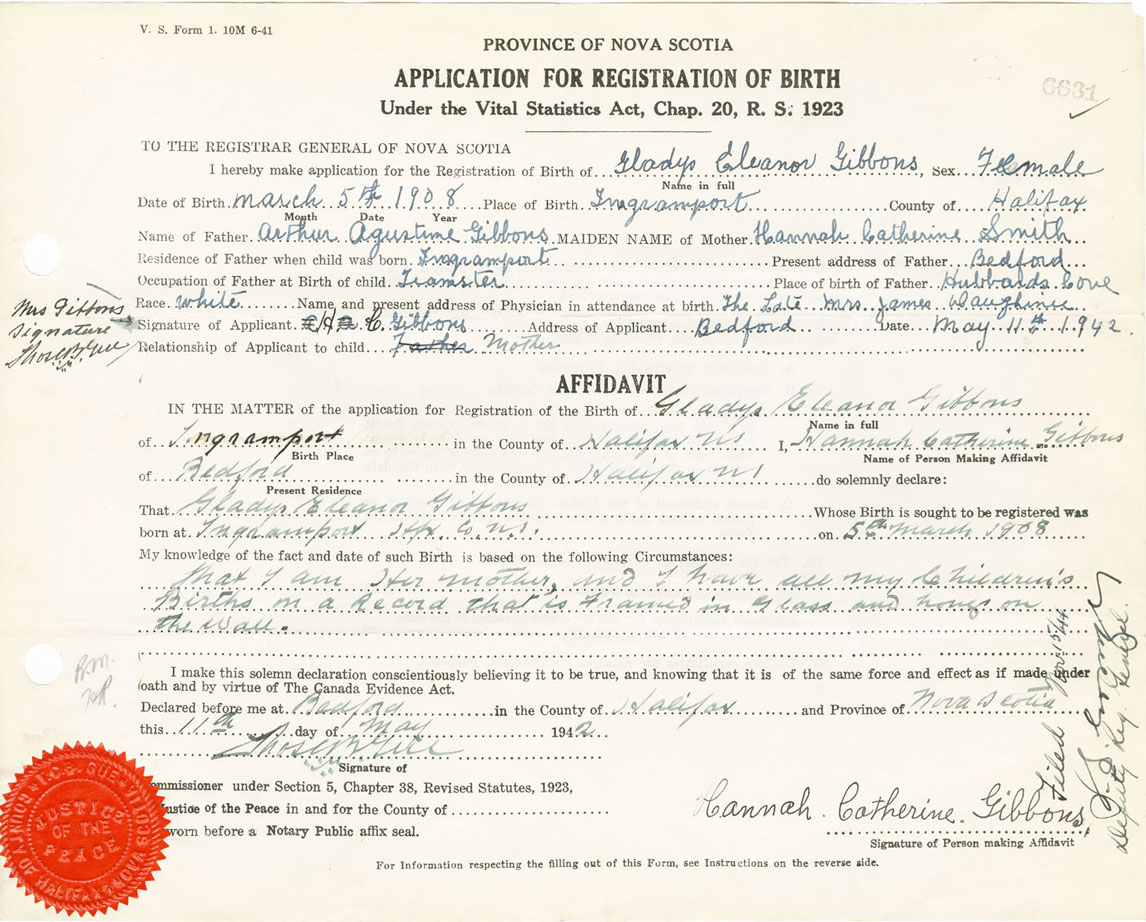 V. S. Form 1. 10M 6-41
PROVINCE OF NOVA SCOTIA
APPLICATION FOR REGISTRATION OF BIRTH
6631
Under the Vital Statistics Act, Chap. 20, R. S. 1923
TO THE REGISTRAR GENERAL OF NOVA SCOTIA
I hereby make application for the Registration of Birth of Gladys Eleanor Gibbons, Sex Female
Name in full
Date of Birth March 5th 1908 Place of Birth Ingramport County of Halifax
Month Date Year
Name of Father Arthur Agustine Gibbons MAIDEN NAME of Mother Hannah Catherine Smith
Residence of Father when child was born Ingramport Present address of Father Bedford
Occupation of Father at Birth of child Teamster Place of birth of Father Hubbards Cove
Race White Name and present address of Physician in attendance at birth The Late Mrs. James
Mrs Gibbons
signature
Signature of Applicant H C Gibbons Address of Applicant Bedford Date May 11th 1942
Relationship of Applicant to child Father Mother
AFFIDAVIT
IN THE MATTER of the application for Registration of the Birth of Gladys Eleanor Gibbons
Name in full
of Ingramport in the County of Halifax NS I, Hannah Catherine Gibbons
Birth Place Name of Person Making Affidavit
of Bedford in the County of Halifax NS do solemnly declare:
Present Residence
That Gladys Eleanor Gibbons Whose Birth is sought to be registered was
born at Ingramport Hfx. Co. N.S. on 5th March 1908
My knowledge of the fact and date of such Birth is based on the following Circumstances:
That I am Her mother, and I have all my Children's
Births on a Record that is Framed in Glass and hongs on
the Wall.
I make this solemn declaration conscientiously believing it to be true, and knowing that it is of the same force and effect as if made under
oath and by virtue of The Canada Evidence Act.
Declared before me at Bedford in the County of Halifax and Province of Nova Scotia
this 11th day of May 1942
Signature of
ommissioner under Section 5, Chapter 38, Revised Statutes, 1923,
Justice of the Peace in and for the County of
worn before a Notary Public affix seal.
Hannah Catherine Gibbons
Signature of Person making Affidavit
For Information respecting the filling out of this Form, see Instructions on the reverse side.
JUSTICE
OF THE
PEACE
Filed Nov. 15/44
Deputy Reg. General